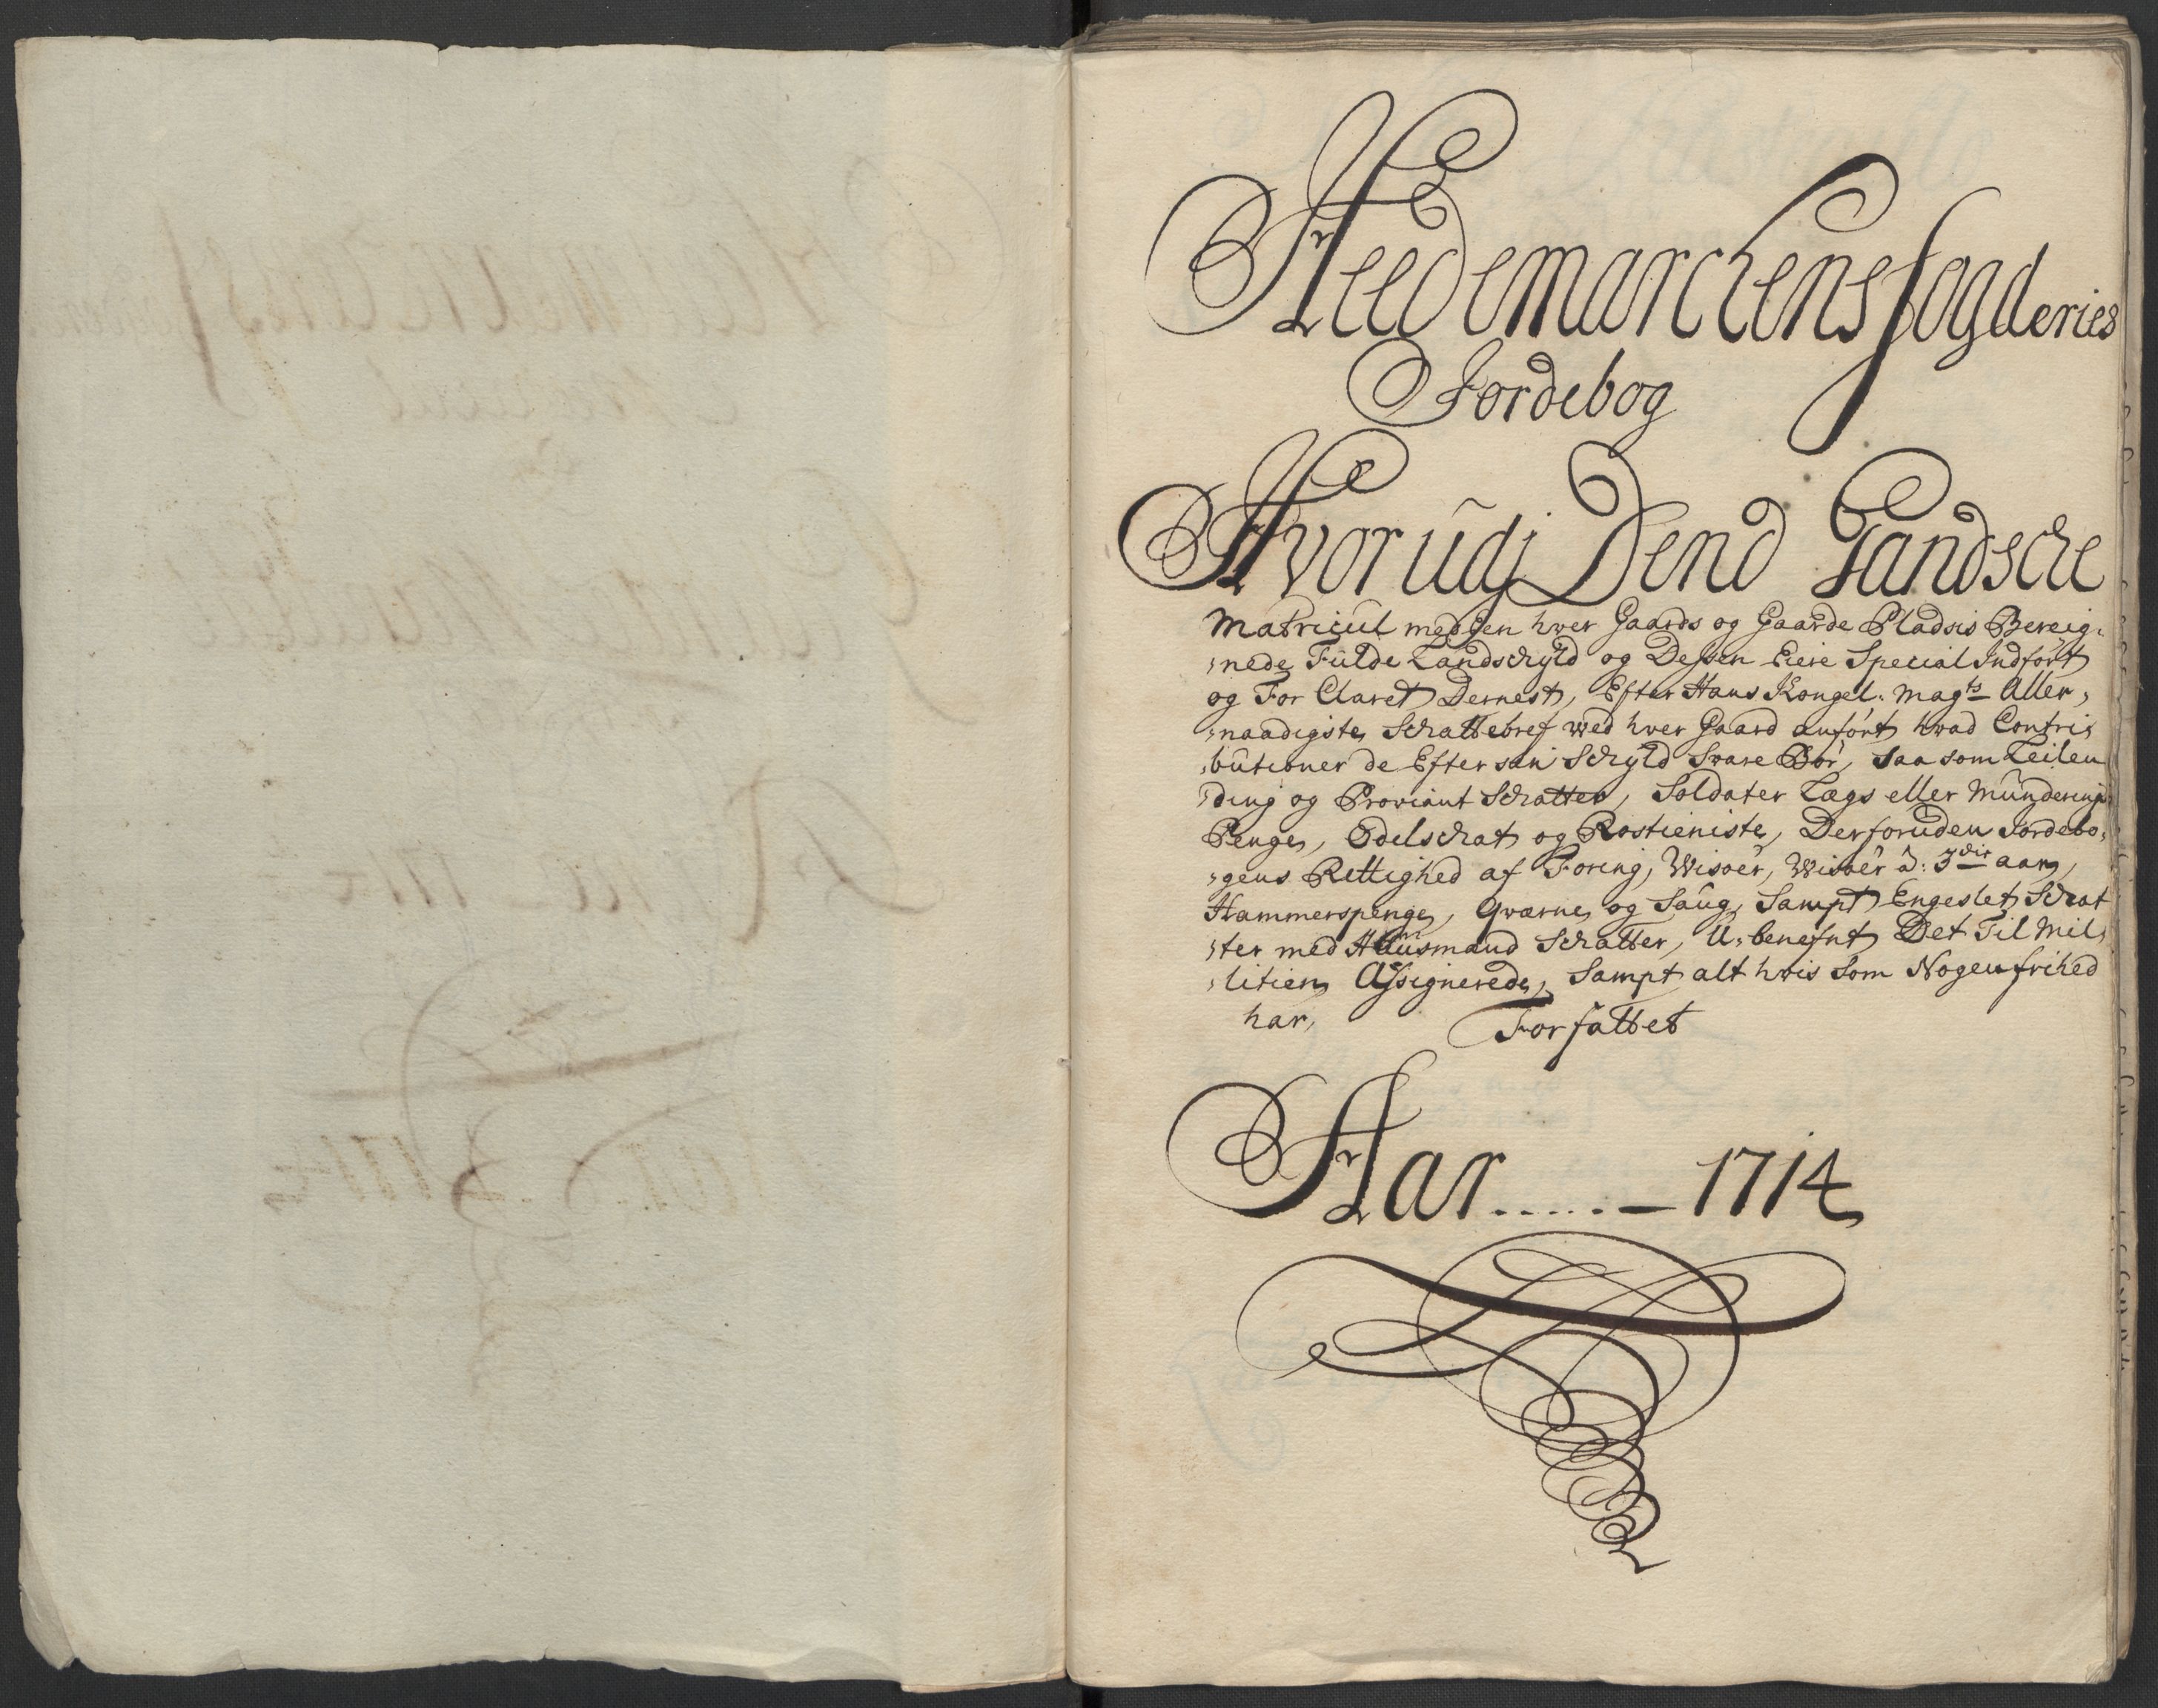 Heedemarchens fogderies
Jordebog
Hvorudj Dend Gandsche
Matricul med Een hver Gaards og Gaarde Pladsis Bereig,
,nede Fulde Landschyld og Dessen Eiere Special Indført
og For Claret Dernest, Efter Hans Kongel. Magts Aller,
,naadigste Schattebref wed hver Gaard anført hvad Contri,
,butioner de Efter sin Schyld Svare Bør, Saa som Leilen
,ding og Proviant Schatter, Soldater Lægs eller Munderings
Penge, Odelschat og Rostieniste, Derforuden Jordebo,
,gens Rettighed af Foring, Wisøer, Wisøer d: 3die aar,
Hammerspenge, Qværne og Saug, Sampt Engeslet Schat
,ter med Huusmand Schatter, U,benefnt Det Til Mil,
,litien Assignerede, Sampt alt hvis Som Nogen frihed
har,
Forfattet
Aar ..... – 1714